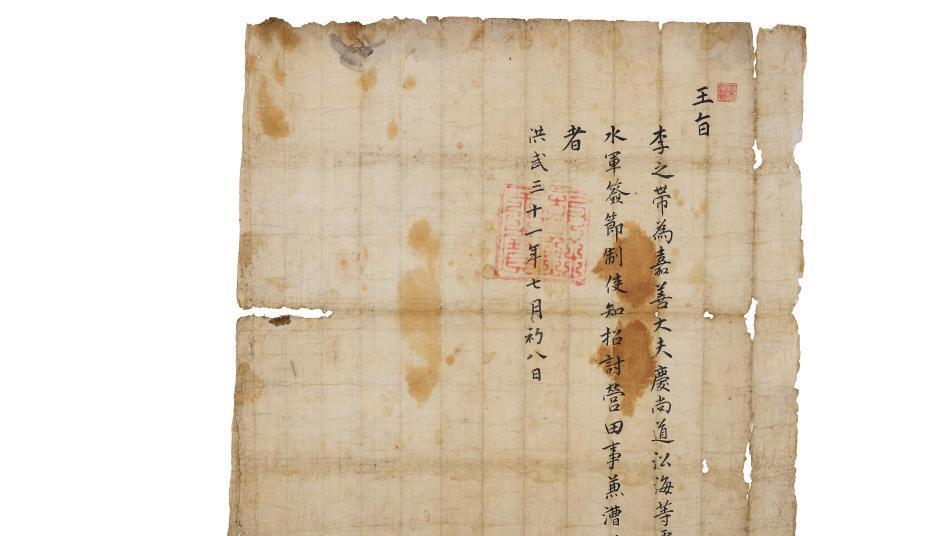 王旨
李之帶為嘉善大夫慶尚道㳂海等
水軍簽節制使知招討營田事兼漕
者
洪武三十一年七月初八日